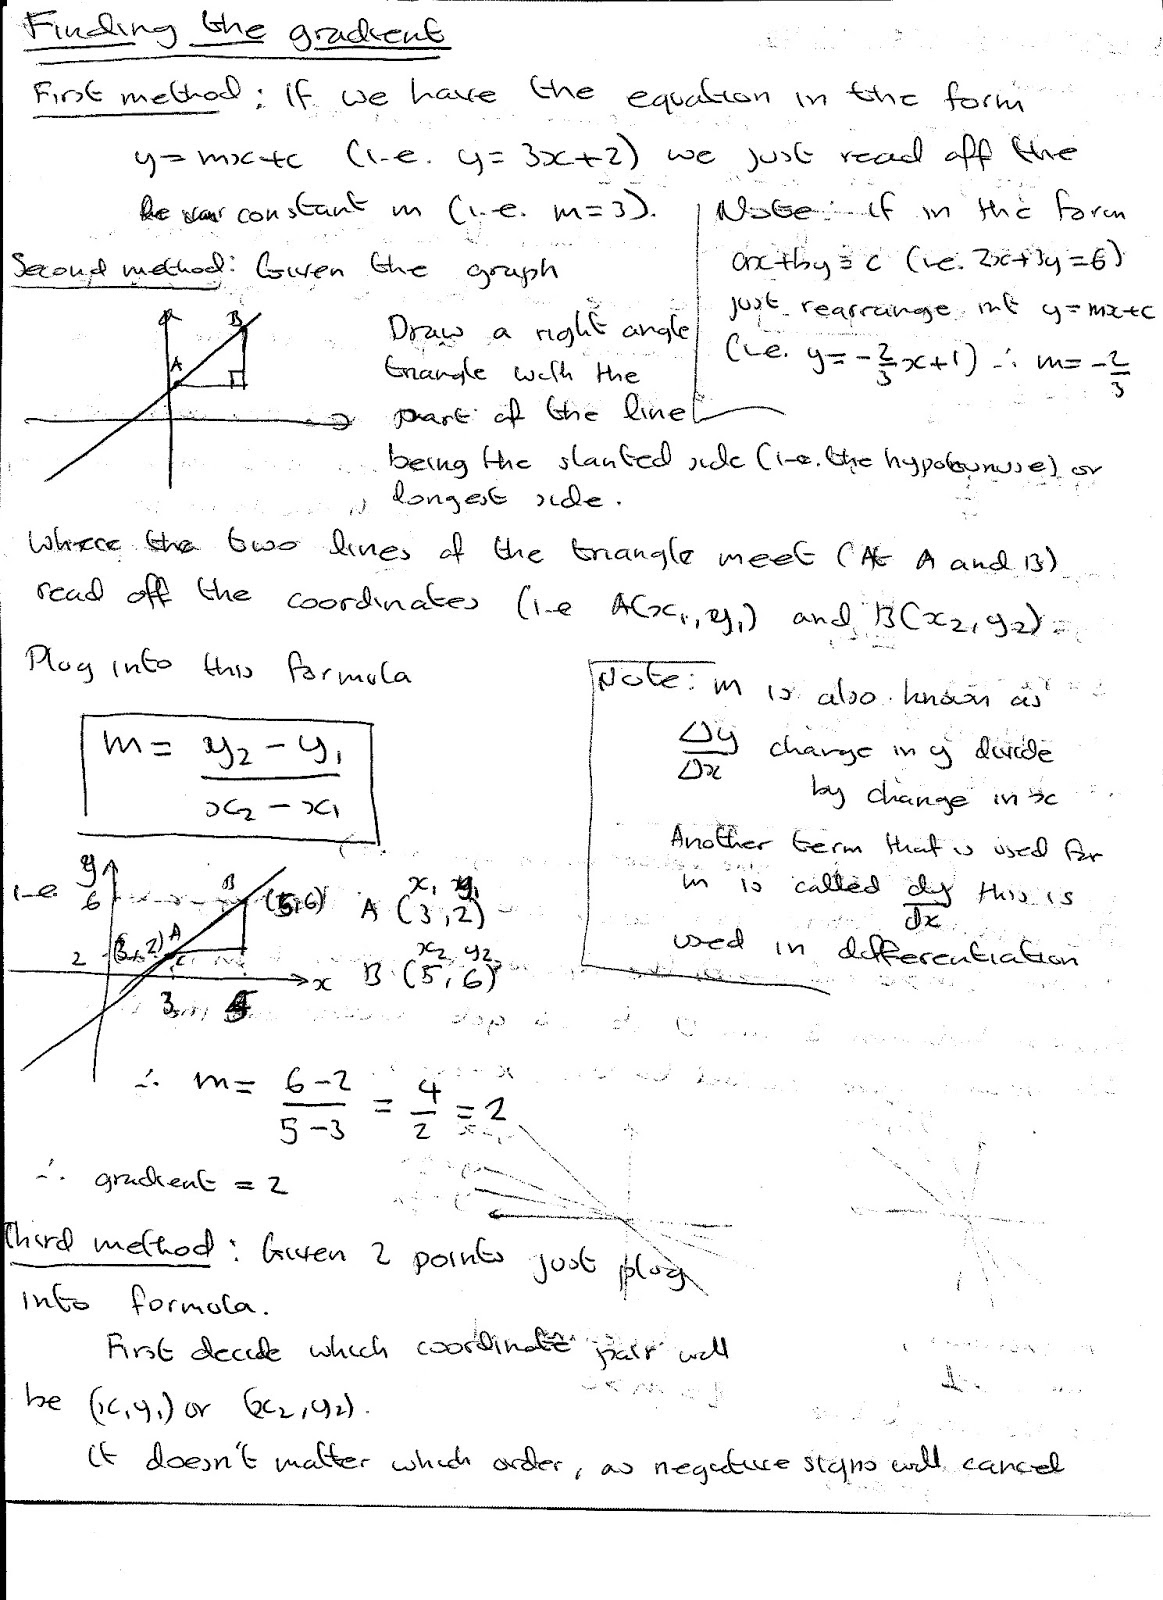 Finding the gradient
First method: If we have the equation in the form
y = mx+c (i.e. y = 3x+2) we just read off the
constant m (i.e. m=3).
Note: if in the form
ax+by = c (i.e. 2x+3y=6)
just rearrange int y=mx+c
(i.e. y = -2/3x+1) ∴ m = -2/3
Second method: Given the graph
A
B
Draw a right angle
triangle with the
part of the line
being the slanted side (i.e. the hypotenuse) or
longest side.
Where the two lines of the triangle meet (At A and B)
read off the coordinates (i.e A(x₁, y₁) and B(x₂, y₂)
Plug into this formula
m = y₂ - y₁
x₂ - x₁
Note: m is also known as
Δy/Δx change in y divide
by change in x
Another term that is used for
m is called dy/dx this is
used in differentiation
i.e
y
6
B
(5,6)
2
(3,2)
A
x
3
5
x₁ y₁
A (3,2)
x₂ y₂
B (5,6)
∴ m = 6-2/5-3 = 4/2 = 2
∴ gradient = 2
Third method: Given 2 points just plug
into formula.
First decide which coordinate pair will
be (x₁, y₁) or (x₂, y₂).
it doesn't matter which order, as negative signs will cancel